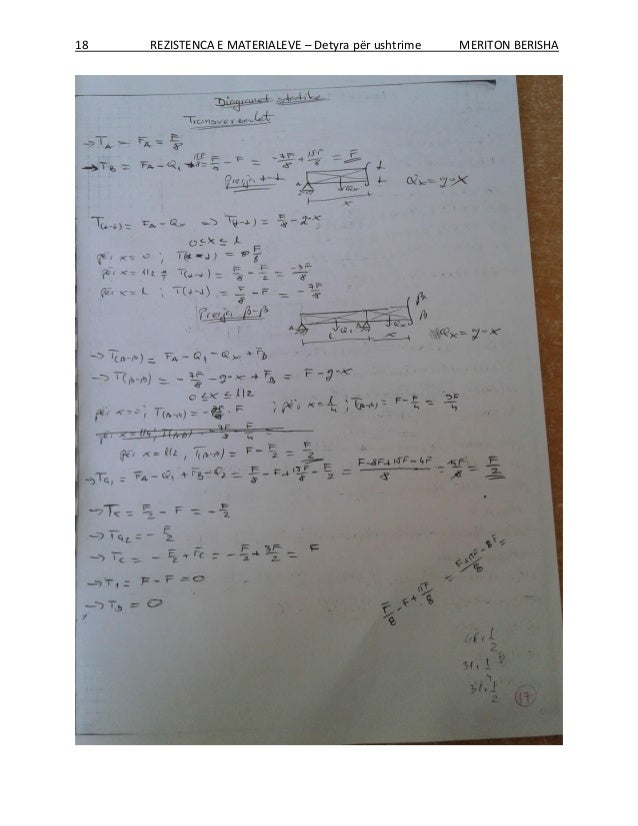 18 REZISTENCA E MATERIALEVE – Detyra për ushtrime MERITON BERISHA
Diagramet statike
Transverzalet
→ T_A = F_A = F/8
→ T_B = F_A - Q_1 + 15F/8 = F/8 - F = -7F/8 + 15F/8 = F
Prerja t-t
A Q_x t t x
Q_x = q·x
T(t-t) = F_A - Q_x => T(t-t) = F/8 - q·x
0 ≤ x ≤ l
për x = 0 ; T(t-t) = F/8
për x = l/2 ; T(t-t) = F/8 - F/2 = -3F/8
për x = l ; T(t-t) = F/8 - F = -7F/8
Prerja β-β
A Q_1 B Q_x β β l x
Q_x = q·x
→ T(β-β) = F_A - Q_1 - Q_x + F_B
→ T(β-β) = -7F/8 - q·x + F_B = F - q·x
0 ≤ x ≤ l/2
për x = 0 ; T(β-β) = F ; për x = l/4 ; T(β-β) = F - F/4 = 3F/4
për x = l/4 ; T(β-β) = -7F/8 - F/4 =
për x = l/2 , T(β-β) = F - F/2 = F/2
→ T_G1 = F_A - Q_1 + F_B - Q_2 = F/8 - F + 15F/8 - F/2 = F-8F+15F-4F/8 = 4F/8 = F/2
→ T_K = F/2 - F = -F/2
→ T_G2 = -F/2
→ T_C = -F/2 + F_C = -F/2 + 3F/2 = F
→ T_1 = F - F = 0
→ T_D = 0
17